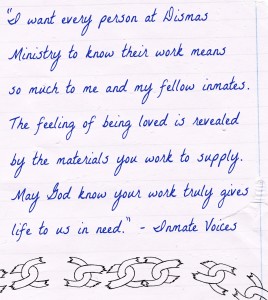 "I want every person at Dismas
Ministry to know their work means
so much to me and my fellow inmates.
The feeling of being loved is revealed
by the materials you work to supply.
May God know your work truly gives
life to us in need." - Inmate Voices